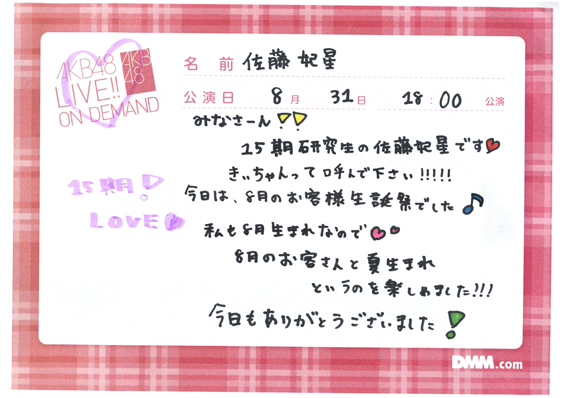 AKB48
LIVE!!
ON DEMAND
AKB
48
名 前 佐藤 妃星
公演日 8月 31日 18:00 公演
みなさーん!!
15期研究生の佐藤妃星です
きぃちゃんって呼んで下さい!!!!!
今日は、8月のお客様生誕祭でした♪
私も8月生まれなので
8月のお客さんと夏生まれ
というのを楽しめました!!!
今日もありがとうございました!
15期!
LOVE
DMM.com